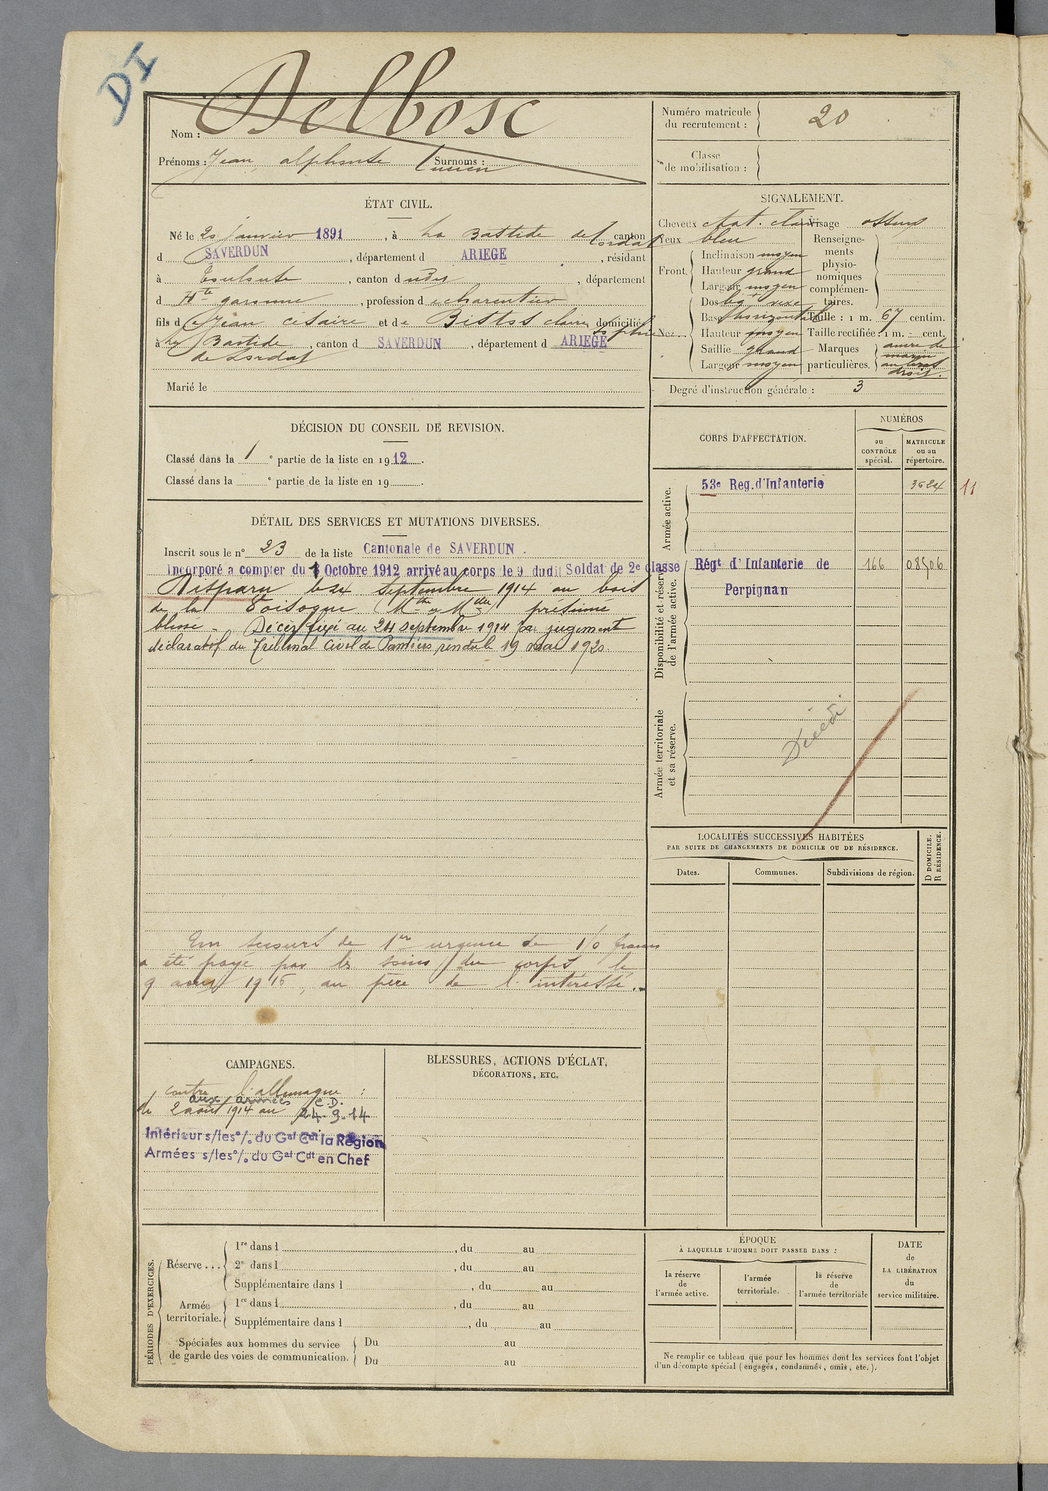 DI
Nom : Delbosc
Prénoms : Jean, alphonse Lucien Surnoms :
Numéro matricule du recrutement : 20
Classe de mobilisation :
ÉTAT CIVIL.
Né le 20 janvier 1891, à La Bastide de Lordat canton
d SAVERDUN, département d ARIEGE, résidant
à Toulouse, canton d udy, département
d Hte garonne, profession de charentier
fils de Jean césaire et de claire Sophie domiciliés
à La Bastide de Lordat, canton d SAVERDUN, département d ARIEGE
Marié le
SIGNALEMENT.
Cheveux chat. clair Visage osseux
Yeux bleu
Renseignements physionomiques complémentaires.
Front.
Inclinaison moyen
Hauteur grand
Largeur moyen
Nez...
Dos
Base horizontal
Hauteur moyen
Saillie grand
Largeur moyen
Taille : 1 m. 67 centim.
Taille rectifiée : 1 m. cent.
Marques particulières. ancre de marin au bras droit.
Degré d'instruction générale : 3
DÉCISION DU CONSEIL DE REVISION.
Classé dans la 1e partie de la liste en 1912.
Classé dans la e partie de la liste en 19
DÉTAIL DES SERVICES ET MUTATIONS DIVERSES.
Inscrit sous le n° 23 de la liste Cantonale de SAVERDUN.
Incorporé a compter du 8 Octobre 1912 arrivé au corps le 9 dudit Soldat de 2e classe
Disparu le 24 septembre 1914 au bois
de la (Mthe & Mlle) présumé
blessé. Décès fixé au 24 septembre 1914 par jugement
déclaratif du Tribunal Civil de Pamiers rendu le 19 mai 1920.
Un secours de 1ère urgence de 150 francs
a été payé par les soins du corps le
9 1915, au père de l'intéressé.
CORPS D'AFFECTATION.
NUMÉROS
au CONTRÔLE spécial.
MATRICULE ou au répertoire.
Armée active.
53e Reg. d'Infanterie 3624 11
Disponibilité et réserve de l'armée active.
Régt d'Infanterie de Perpignan 166 08506
Armée territoriale et sa réserve.
Décédé
LOCALITÉS SUCCESSIVES HABITÉES
PAR SUITE DE CHANGEMENTS DE DOMICILE OU DE RÉSIDENCE.
Dates.
Communes.
Subdivisions de région.
D DOMICILE.
R RÉSIDENCE.
CAMPAGNES.
contre l'allemagne :
aux armées C.D.
du 2 août 1914 au 24-9-14
Intérieur s/les °/. du Gal Cdt la Région
Armées s/les °/. du Gal Cdt en Chef
BLESSURES, ACTIONS D'ÉCLAT,
DÉCORATIONS, ETC.
PÉRIODES D'EXERCICES.
Réserve...
1re dans l , du au
2e dans l , du au
Supplémentaire dans l , du au
Armée territoriale.
1re dans l , du au
Supplémentaire dans l , du au
Spéciales aux hommes du service de garde des voies de communication.
Du au
Du au
ÉPOQUE
À LAQUELLE L'HOMME DOIT PASSER DANS :
la réserve de l'armée active.
l'armée territoriale.
la réserve de l'armée territoriale
DATE de LA LIBÉRATION du service militaire.
Ne remplir ce tableau que pour les hommes dont les services font l'objet
d'un décompte spécial (engagés, condamnés, omis, etc.).